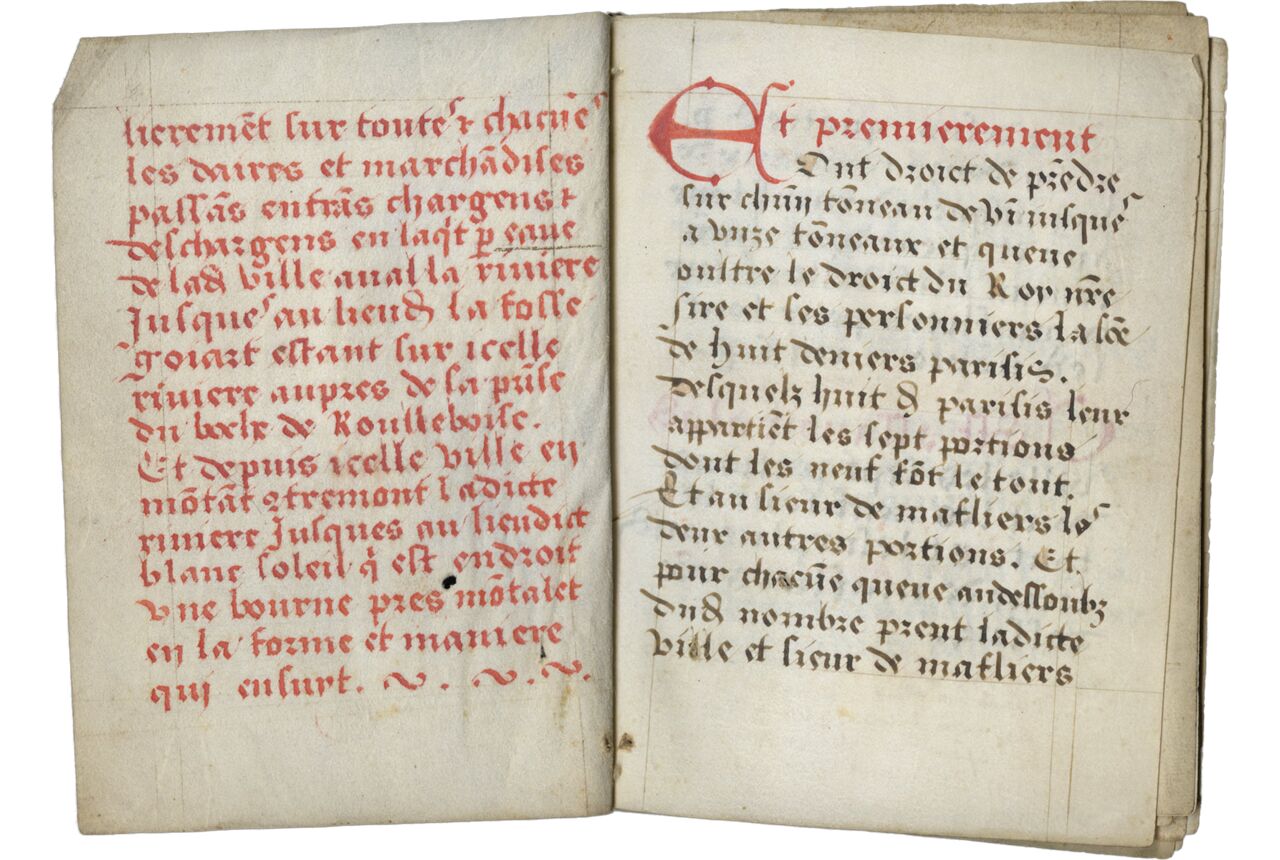 lieremēt sur toutes ⁊ chacūes
les daires et marchādises
passās entrās chargens ⁊
deschargens en laq̄t p̄ eaue
de lad ville aual la riuiere
Jusques au lieud la fosse
goiart estant sur icelle
riuiere aupres de la prīse
du bois de Roulleboise.
Et depuis icelle ville en
mōtāt ꝯtremont ladicte
riuiere Jusques au lieudict
blanc soleil q̄ est endroit
vne bourne pres mōtalet
en la forme et maniere
qui ensuyt.
Et premierement
Ont droict de prēdre
sur chūn tōneau de vī iusques
a vnze tōneaux et queue
oultre le droict du Roy nr̄e
sire et les personniers la sōe
de huit deniers parisis.
desquelz huit d parisis leur
appartiēt les sept portions
dont les neuf fōt le tout.
Et au sieur de mafliers les
deux autres portions. Et
pour chacūe queue au dessoubz
dud nombre prent ladicte
ville et sieur de mafliers